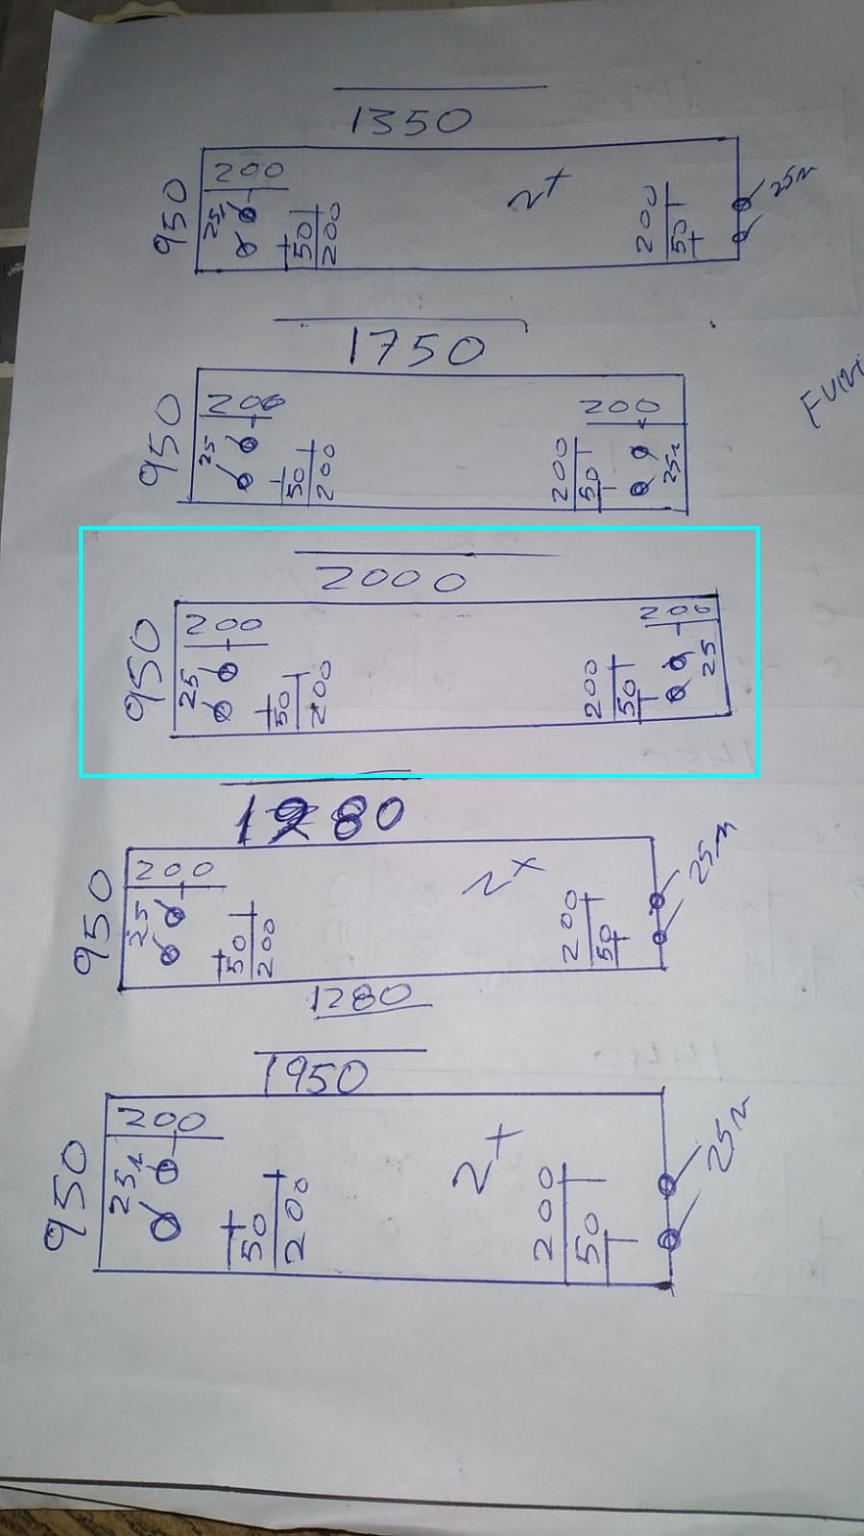 1350
950
200
25
50
200
2+
200
50
25
1750
950
200
25
50
200
200
50
200
25
2000
950
200
25
50
200
200
50
200
25
1280
950
200
25
50
200
2+
200
50
25
1280
1950
950
200
25
50
200
2+
200
50
25